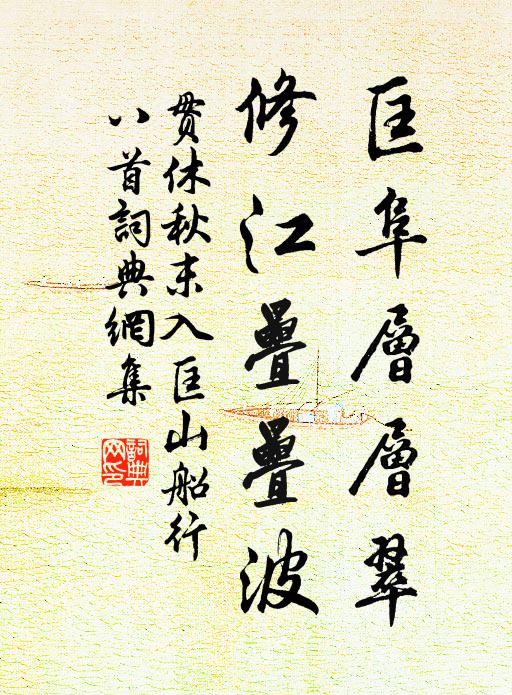 匡阜層層翠
修江疊疊波
貫休秋末入匡山船行
八首詞典網集
詞典網印